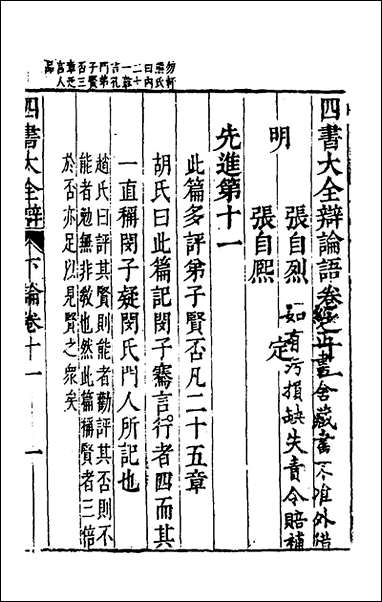 勿軒
熊氏
曰内
二十
一章
言孔
門弟
子賢
否三
章是
言人
品
四書大全辯論語卷之十一
經正書舍藏書不准外借
如有污損缺失責令賠補
張自烈
明 定
張自熙
先進第十一
此篇多評弟子賢否凡二十五章
胡氏曰此篇記閔子騫言行者四而其
一直稱閔子疑閔氏門人所記也
趙氏曰評其賢則能者勸評其否則不
能者勉無非敎也然此篇稱賢者三倍
於否亦足以見賢之衆矣
四書大全辯 下論卷十一 一